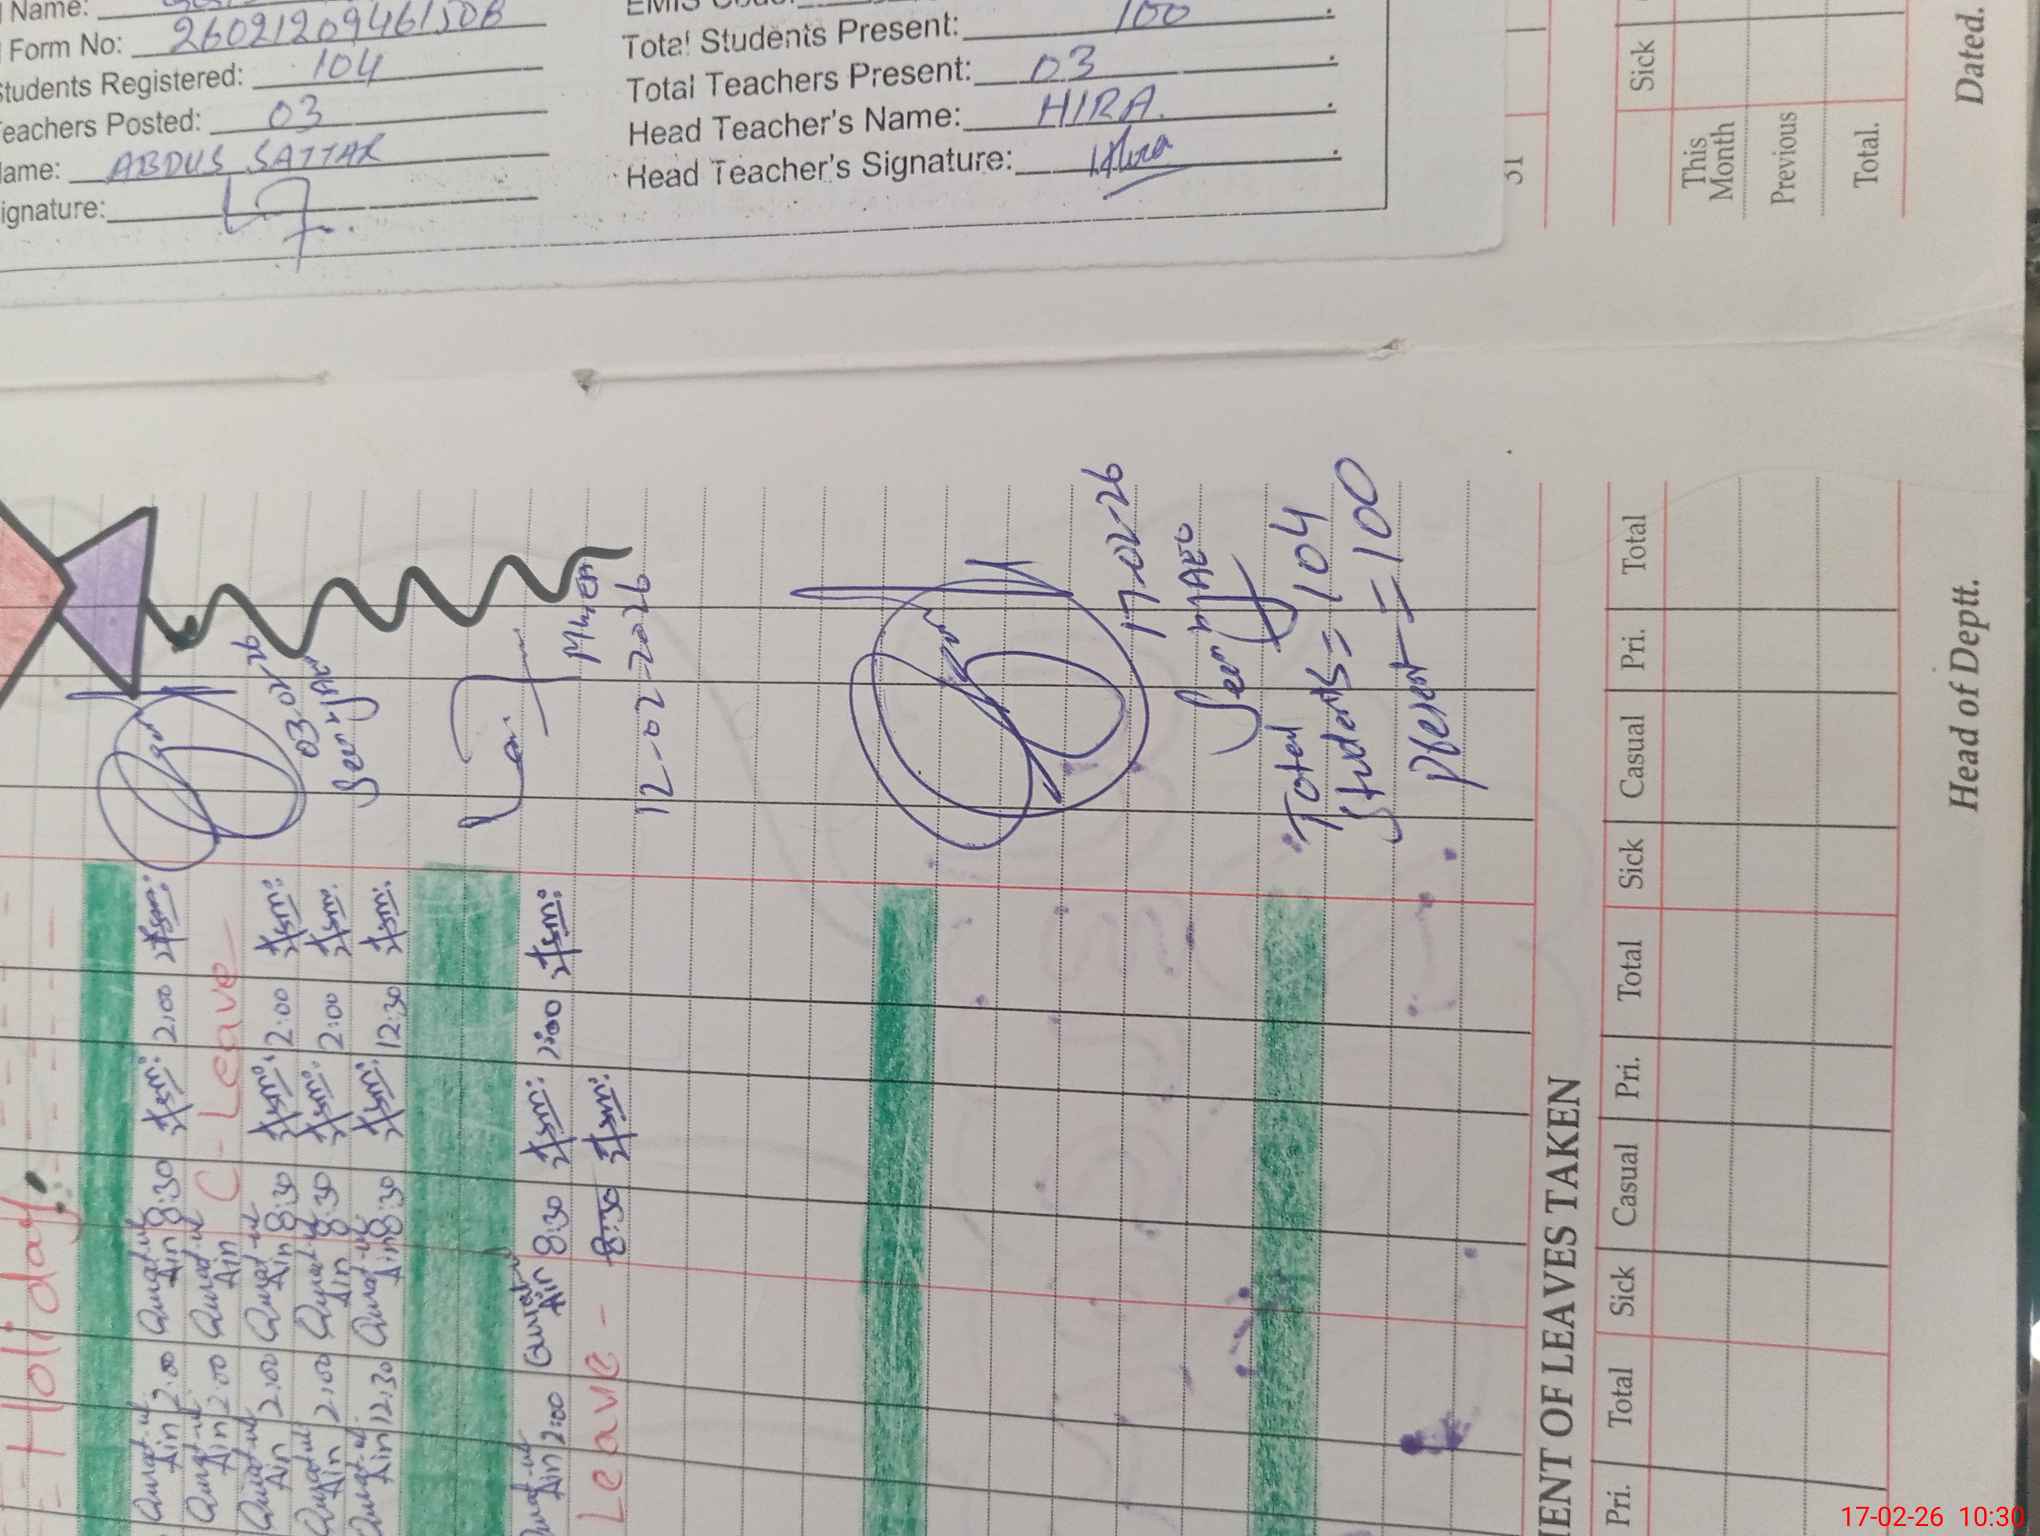 Name:
Form No: 2602120946150B
tudents Registered: 104
eachers Posted: 03
ame: ABDUS SATTAR
ignature:
Total Students Present: 100
Total Teachers Present: 03
Head Teacher's Name: HIRA.
Head Teacher's Signature: Hira
31
Sick
This Month
Previous
Total.
Dated.
Holiday.
Qurat-ul Ain 2:00 Qurat-ul Ain 8:30 2:00
Qurat-ul Ain 2:00 Qurat-ul Ain C-Leave
Qurat-ul Ain 2:00 Qurat-ul Ain 8:30 2:00
Qurat-ul Ain 2:00 Qurat-ul Ain 8:30 2:00
Qurat-ul Ain 12:30 Qurat-ul Ain 8:30 12:30
Qurat-ul Ain 2:00 Qurat-ul Ain 8:30 2:00
Leave - 8:30
03-02-26
Seen
12-02-2026
17-02-26
Seen
Total
Students = 104
Present = 100
MENT OF LEAVES TAKEN
Pri. Total Sick Casual Pri. Total Sick Casual Pri. Total
Head of Deptt.
17-02-26 10:30